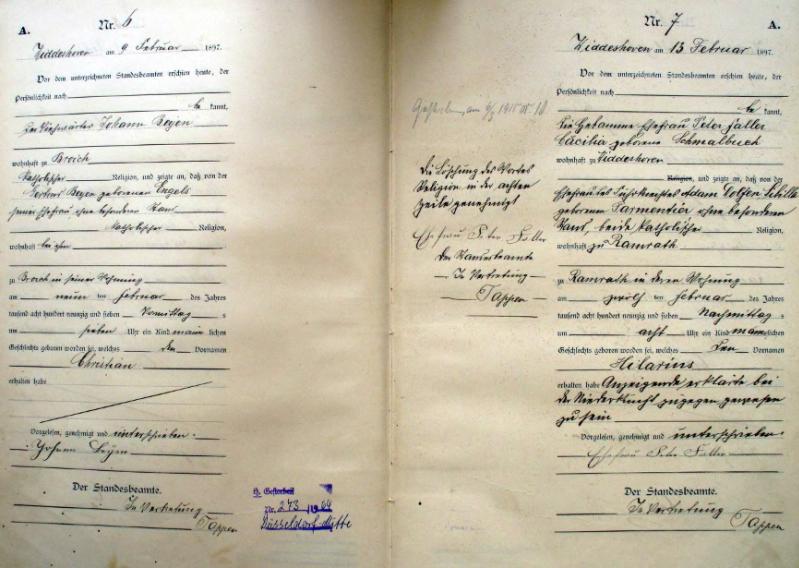 A.
Nr. 6
Widdeshoven am 9 Februar 1897.
Vor dem unterzeichneten Standesbeamten erschien heute, der
Persönlichkeit nach
be kannt,
Johann Beyen
wohnhaft zu Broich
katholischer Religion, und zeigte an, daß von der
Beyen geborenen Engels
seiner Ehefrau ohne besonderen Stand
katholischer Religion,
wohnhaft bei ihm
zu Broich in seiner Wohnung
am neun ten Februar des Jahres
tausend acht hundert neunzig und sieben Vormittag s
um sieben Uhr ein Kind männ lichen
Geschlechts geboren worden sei, welches den Vornamen
Christian
erhalten habe
Vorgelesen, genehmigt und unterschrieben.
Johann Beyen
Der Standesbeamte.
In Vertretung
Tappen
H. Gestorben
Nr. 273/1964
Düsseldorf-Mitte
Die Löschung des Wortes
Religion in der achten
Zeile genehmigt
Ehefrau Peter Faller
Der Standesbeamte
In Vertretung
Tappen
Nr. 7
A.
Widdeshoven am 13 Februar 1897.
Vor dem unterzeichneten Standesbeamten erschien heute, der
Persönlichkeit nach
be kannt,
die Hebamme Ehefrau Peter Faller
Cäcilia geborene Schmalbuch
wohnhaft zu Widdeshoven
Religion, und zeigte an, daß von der
Ehefrau des Adam Sibilla
geborenen Parmentier ohne besonderen
Stand, beide katholischer Religion,
wohnhaft zu Ramrath
zu Ramrath in deren Wohnung
am zwölf ten Februar des Jahres
tausend acht hundert neunzig und sieben Nachmittag s
um acht Uhr ein Kind männlichen
Geschlechts geboren worden sei, welches den Vornamen
Hilarius
erhalten habe Anzeigende erklärte bei
der Niederkunft zugegen gewesen
zu sein
Vorgelesen, genehmigt und unterschrieben
Ehefrau Peter Faller
Der Standesbeamte.
In Vertretung
Tappen